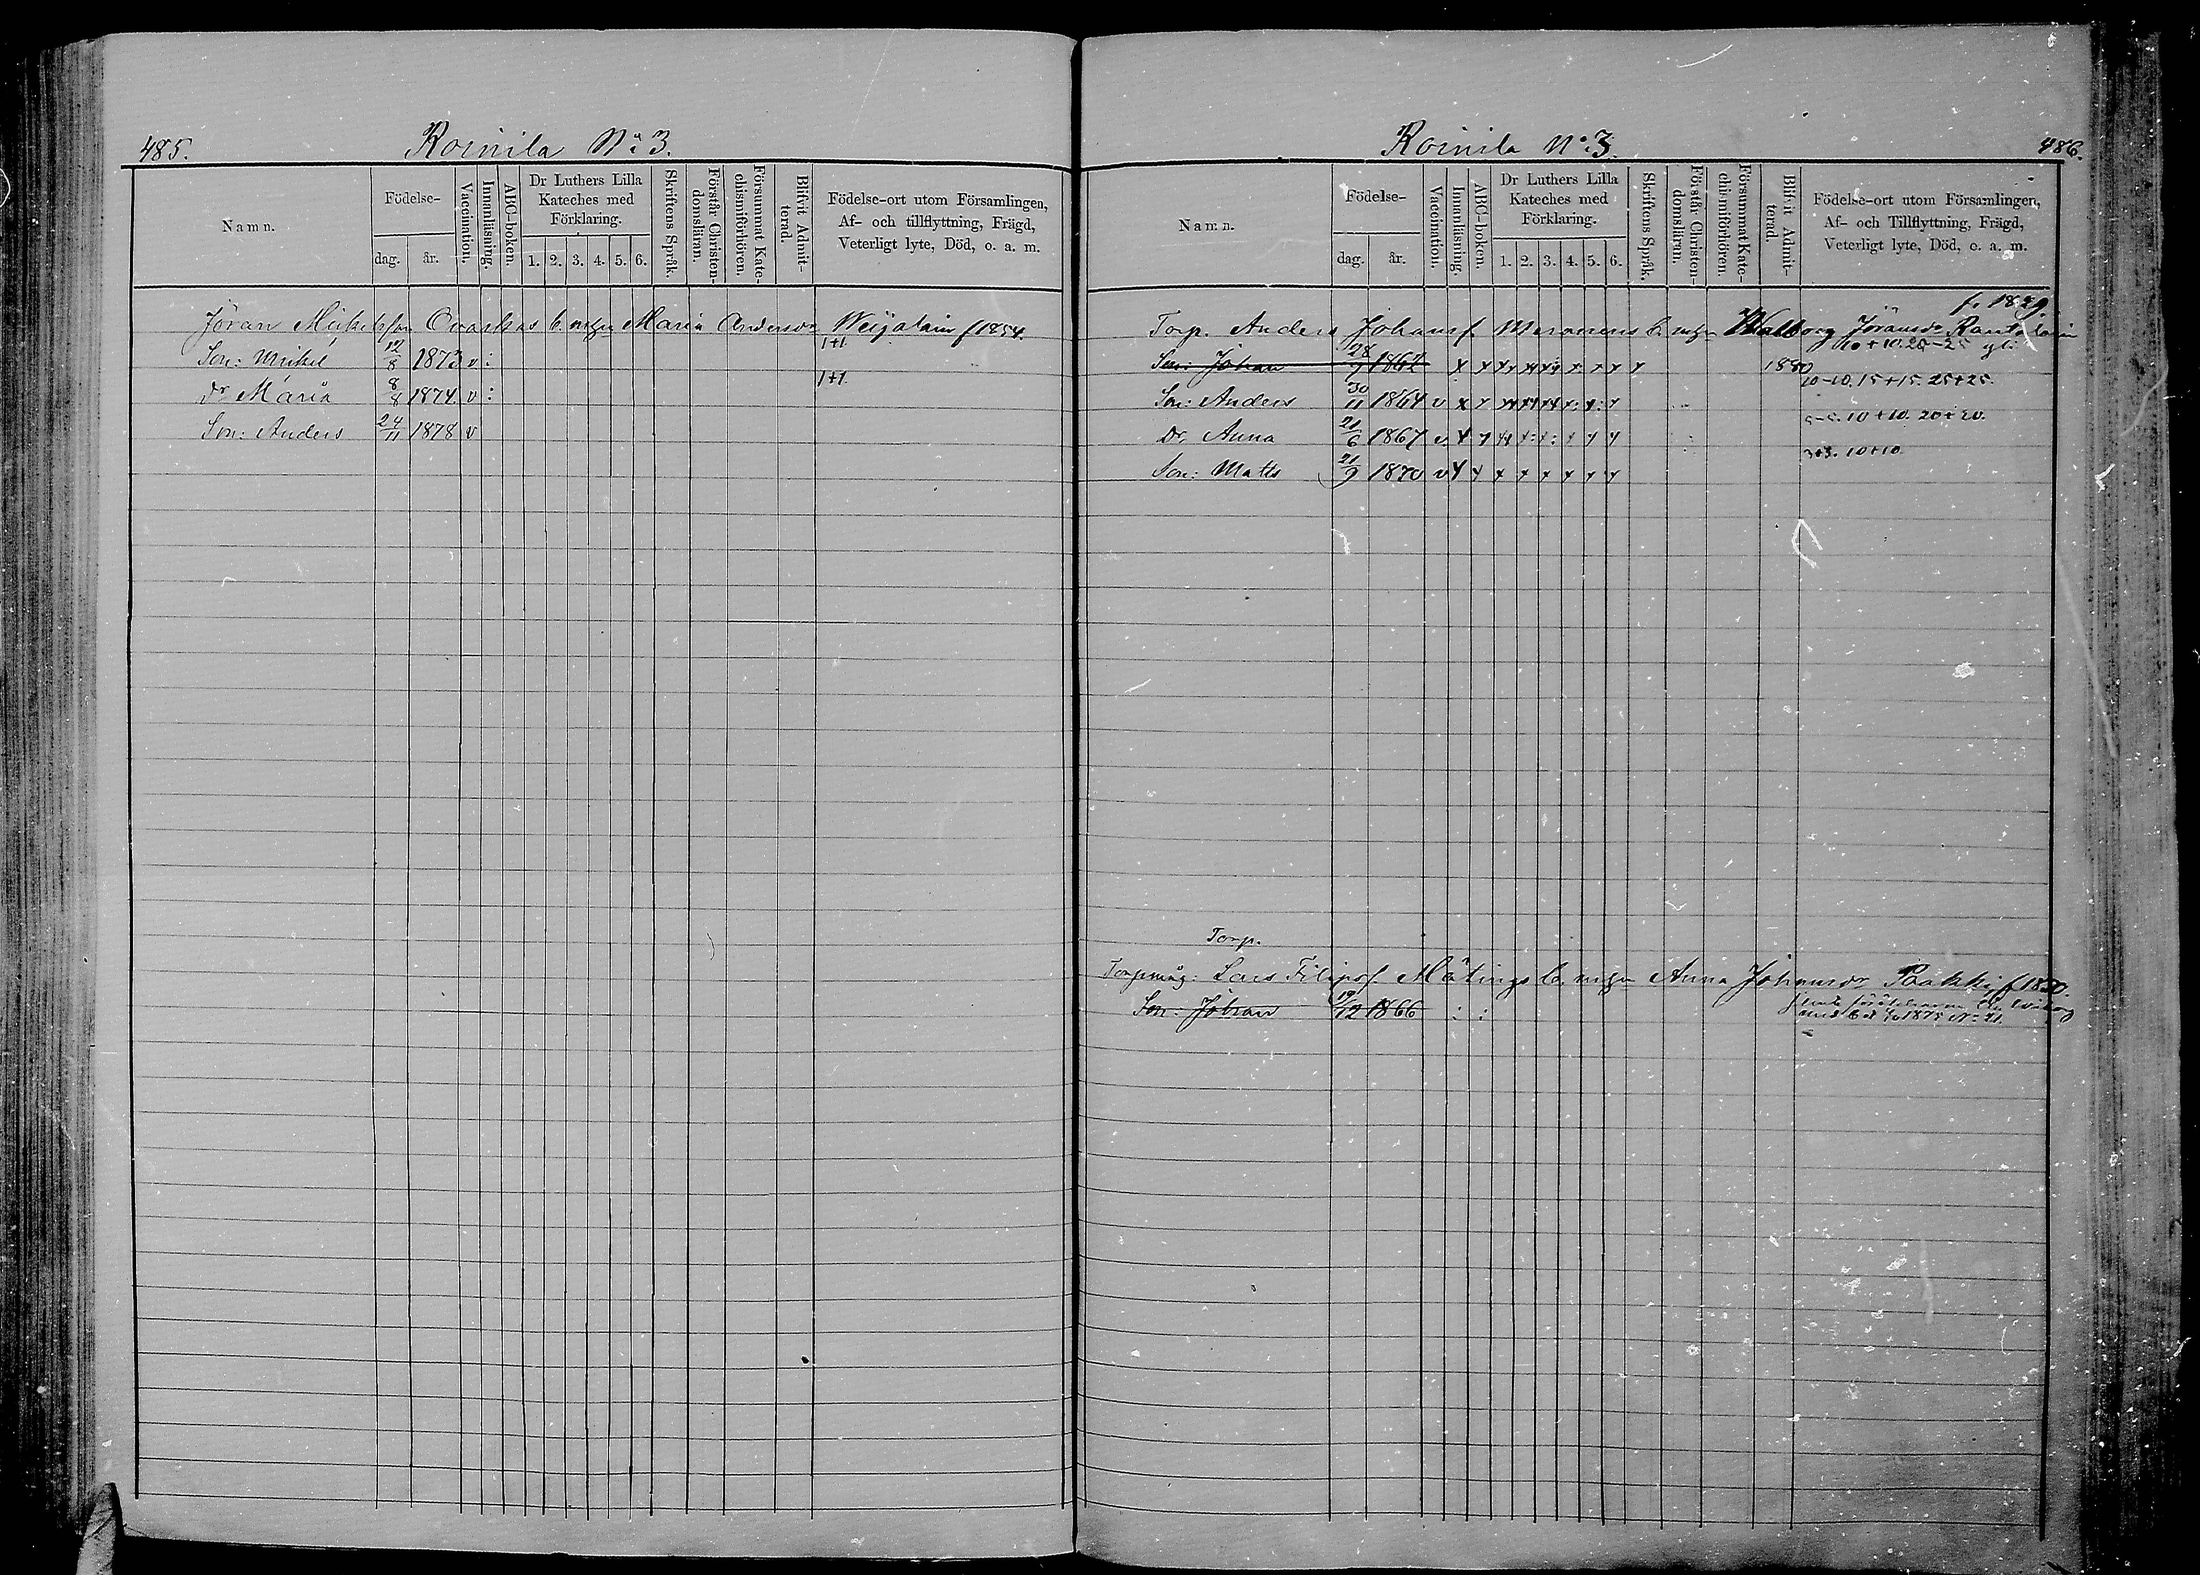 485.
Roinila No: 3.
Namn.
Födelse-
dag.
år.
Vaccination.
Innanläsning.
ABC-boken.
Dr Luthers Lilla
Kateches med
Förklaring.
1. 2. 3. 4. 5. 6.
Skriftens Språk.
Förstår Christen-
domsläran.
Försummat Kate-
chismiförhören.
Blifvit Admit-
terad.
Födelse-ort utom Församlingen,
Af- och tillflyttning, Frägd,
Veterligt lyte, Död, o. a. m.
Jöran Mickelsson b. m. hu Maria Andersdr f 1854.
1+1.
Son: Mikel 12/8 1873 v :
1+1.
Dr Maria 8/8 1874. v :
Son: Anders 24/11 1878 v
Roinila No: 3.
486.
Namn.
Födelse-
dag.
år.
Vaccination.
Innanläsning.
ABC-boken.
Dr Luthers Lilla
Kateches med
Förklaring.
1. 2. 3. 4. 5. 6.
Skriftens Språk.
Förstår Christen-
domsläran.
Försummat Kate-
chismiförhören.
Blifvit Admit-
terad.
Födelse-ort utom Församlingen,
Af- och Tillflyttning, Frägd,
Veterligt lyte, Död, o. a. m.
Torp. Anders Johansf b. m. hu Walborg Jöransdr
10+10. 25-25
Son: Johan 28/9 1862 x x x x x x x x x 1880
10-10. 15+15. 25+25.
Son: Anders 30/11 1864 v x x
10+10. 20+20.
Dr. Anna 21/6 1867 v x
3+3. 10+10
Son: Matts 21/9 1870 v x x x x x x x x
Torp.
Torpmåg: Lars Filipsf. b. m. hu Anna Johansdr f 1830.
Son: Johan 19/12 1866 : :
1875 No 21.